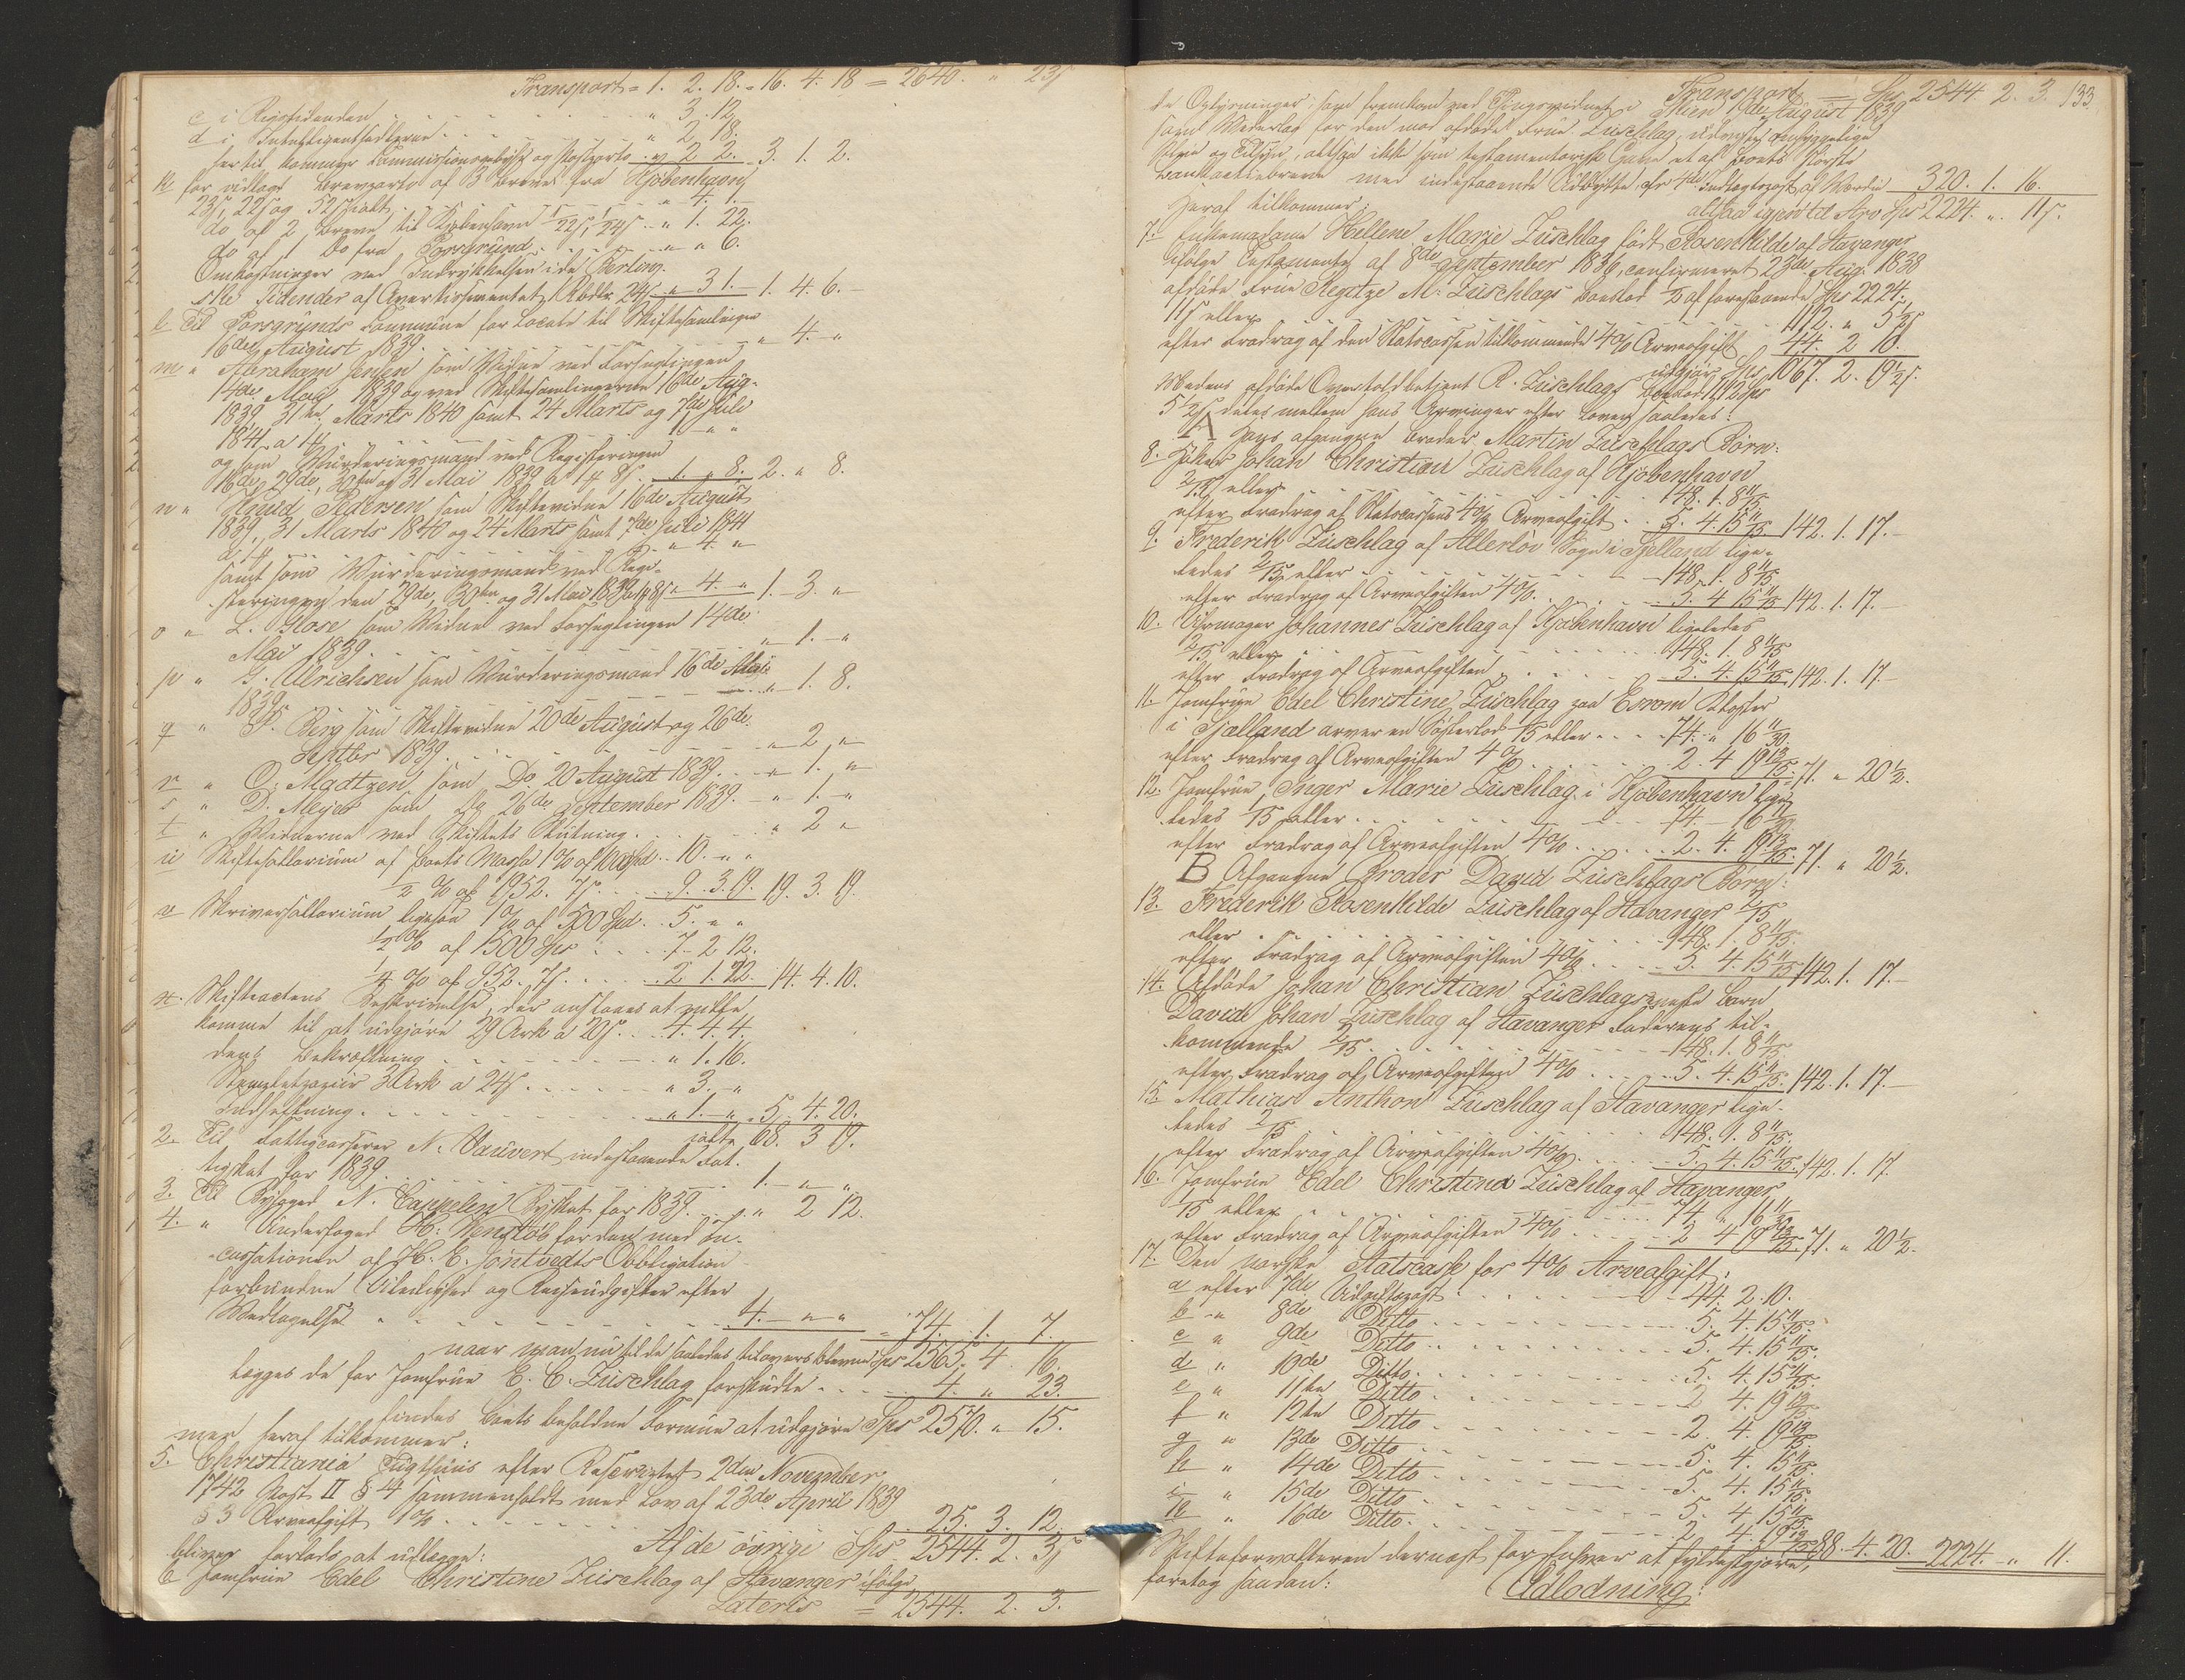 Transport = 1. 2. 18. = 16. 4. 18 = 2640. " 23ß
c i Rigstidenden . . . " 3. 12.
d i Intelligentssedlerne . . . " 2. 18.
hertil kommer Commissionsgebyhr og Postporto " 2 2. 3. 1. 2.
k for udlagt Brevporto af 3 Breve fra Kjöbenhavn
23ß, 22ß og 52ß ialt . . . " 4. 1.
do af 2 Breve til Kjöbenhavn 22ß, 24ß . . " 1. 22.
do af 1 Do fra Porsgrund . . . " " 6.
Omkostninger ved Indrykkelsen i de Berling-
ske Tidender af Avertissementet Rbdlr 24ß " 3 1. - 1. 4. 6. -
l Til Porsgrunds Commune for Locale til Skiftesamlingen
16de August 1839. . . . " 4. "
m " Abraham Jensen som Vidne ved Forseglingen
14de Mai 1839 og ved Skiftesamlingerne 16de Aug.
1839, 31te Marts 1840 samt 24 Marts og 7de Juli
1841 a 1 #
og som Vurderingsmand ved Registeringen
16de, 29de, 30te og 31 Mai 1839 a 1 # 8ß . . 1. " 8. 2. " 8.
n " Pedersen som Skiftevidne 16de August
1839, 31 Marts 1840 og 24 Marts samt 7de Juli 1841
a 1 # . . " 4. "
samt som Vurderingsmand ved Regi-
steringen den 29de, 30te og 31 Mai 1839 a 1 # 8ß " 4. " 1. 3. "
o " L. Glose som Vidne ved Forseglingen 14de
Mai 1839. . . . " 1. "
p " G. Ulrichsen som Vurderingsmand 16de Mai
1839. . . . " 1. 8.
q " P. Berg som Skiftevidne 20de August og 26de
Septbr 1839. . . . " 2 "
r " O. Madtzen som Do 20 August 1839. . . " 1. "
s " D. Meyer som Do 26de September 1839. - " 1. "
t " Vidnerne ved Skiftets Slutning. . . . " 2 "
u Skiftesallarium af Boets Masse 1% af 1000 Spd. . 10. " "
1/2 % af 1952. 7ß. . . . 9. 3. 19. 19. 3. 19.
v Skriversallarium ligesaa 1% af 500 Spd. . 5. " "
1/2 % af 1500 Sps . . . 7. 2 12.
1/4 % af 952. 7ß. . . . 2 1. 22. 14. 4. 10.
x. Skifteactens Beskrivelse, der antages at ville
komme til at udgjöre 29 Ark a 20ß . . 4. 4. 4.
dens Bekræftning . . . " 1. 16.
Stempletpapiir 3 Ark a 24ß . . . " 3. "
Indheftning. . . . " 1. " 5. 4. 20.
ialt 68. 3 19.
2. Til Fattigcasserer N. Vauvert indestaaende Fat-
tigskat for 1839. . . . 1. " "
3. Til Byfoged N. Cappelen Byskat for 1839. . . " 2 12.
4. " Underfoged H. Venstöb for den med In-
cassationen af H. E. Jöntvedts Obligation
forbundne Uleilighed og Reiseudgifter efter
Vedtagelse " . . . 4. " " = 74. 1. 7.
naar man nu til de saaledes tilovers blevne Sps 2565. 4. 16.
lægges de for Jomfrue E. C. Züschlag forskudte . . . 4. " 23.
findes Boets beholdne Formue at udgjöre Sps 2570. " 15.
men heraf tilkommer:
5. Christiania Tugthuus efter Rescriptet 2den November
1742 Post II § 4 sammenholdt med Lov af 23de April 1839
§ 3 Arveafgift 1% . . . 25. 3. 12.
Af de övrige Sps 2544. 2. 3ß
bliver forlods at udlægge:
6 Jomfrue Edel Christine Züschlag af Stavanger ifölge
Lateris = 2544. 2. 3.
133.
Transport = Sps 2544. 2. 3.
de Oplysninger, som fremkom ved Thingsvidnet i Skien 1ste August 1839
samt Vederlag for den mod afdöde Frue Züschlag udviste omhyggelige
Pleie og Tilsyn, altsaa ikke som testamentarisk Gave et af Boets störste
Bankactiebreve med indestaaende Udbytte efter 4de Indtægtspost af Værdie 320. 1. 16.
altsaa igjen til Arv Sps 2224. " 11ß.
Heraf tilkommer:
7. Enkemadame Hellene Marie Züschlag födt Rosenkilde af Stavanger
ifölge Testamentet af 8de September 1836, confirmeret 23de Aug. 1838
afdöde Frue Regitze M. Züschlags Boeslod 1/2 af forestaaende Sps 2224.
11ß eller . . . 1112. " 5 1/2
efter Fradrag af den Statscassen tilkommende 4% Arveafgift 44. 2 10.
udgjör Sps 1067. 2. 19 1/2ß.
Medens afdöde Overtoldbetjent R. Züschlags Boeslod 1112 Sps
5 1/2ß deles mellem hans Arvinger efter Loven saaledes:
A Hans afgangne Broder Martin Züschlags Börn:
8. Höker Johan Christian Züschlag af Kjöbenhavn
2/15 eller . . . 148. 1. 8 11/15
efter Fradrag af Statscassens 4% Arveafgift . . 5. 4. 15 11/15. 142. 1. 17. -
9. Frederik Züschlag af Allerlöv Sogn i Sjelland lige-
ledes 2/15 eller . . . 148. 1. 8 11/15.
efter Fradrag af Arveafgiften 4%. . . . 5. 4 15 11/15 142. 1. 17. -
10. Uhrmager Johannes Züschlag af Kjöbenhavn ligeledes
2/15 eller . . . 148. 1. 8 11/15
efter Fradrag af Arveafgiften . . . 5. 4. 15 11/15 142. 1. 17. -
11. Jomfrue Edel Christine Züschlag paa Esrom Kloster
i Sjælland arver en Sösterlod 1/15 eller . . . 74. " 16 11/30
efter Fradrag af Arveafgiften 4% . . . 2. 4 19 13/15. 71. " 20 1/2.
12. Jomfrue Inger Marie Züschlag i Kjöbenhavn lige-
ledes 1/15 eller . . . 74 - 16 11/30
efter Fradrag af Arveafgiften 4% . . . 2. 4. 19 13/15. 71. " 20 1/2.
B Afgangne Broder David Züschlags Börn:
13. Frederik Rosenkilde Züschlag af Stavanger 2/15
eller . . . 148. 1. 8 11/15.
efter Fradrag af Arveafgiften 4% . . . 5. 4. 15 11/15 142. 1. 17 -
14. Afdöde Johan Christian Züschlags eneste Barn
David Johan Züschlag af Stavanger Faderens til-
kommende 2/15 . . . 148. 1. 8 11/15
efter Fradrag af Arveafgiften 4% . . . 5. 4. 15 11/15. 142. 1. 17. -
15. Mathias Anthon Züschlag af Stavanger lige-
ledes 2/15 . . . 148. 1. 8 11/15.
efter Fradrag af Arveafgiften 4%. . . . 5. 4. 15 11/15. 142. 1. 17.
16. Jomfrue Edel Christina Züschlag af Stavanger
1/15 eller . . . 74 " 16 11/30
efter Fradrag af Arveafgiften 4% . . . 2 4 19 13/15 71. " 20 1/2.
17. Den norske Statscasse for 4% Arveafgift:
a efter 7de Udgiftspost . . . 44. 2. 10.
b " 8de Ditto . . . 5. 4. 15 11/15.
c " 9de Ditto . . . 5. 4. 15 11/15.
d " 10de Ditto . . . 5. 4. 15 11/15.
e " 11te Ditto . . . 2 4. 19 13/15
f " 12te Ditto . . . 2. 4. 19 13/15
g " 13de Ditto . . . 5. 4. 15 11/15.
h " 14de Ditto . . . 5. 4. 15 11/15.
i " 15de Ditto . . . 5. 4 15 11/15
k " 16de Ditto . . . 2 4. 19 13/15 88. 4. 20. 2224. " 11.
Skifteforvalteren dernæst for Enhver at fyldestgjöre,
foretog saadan:
Udlodning: